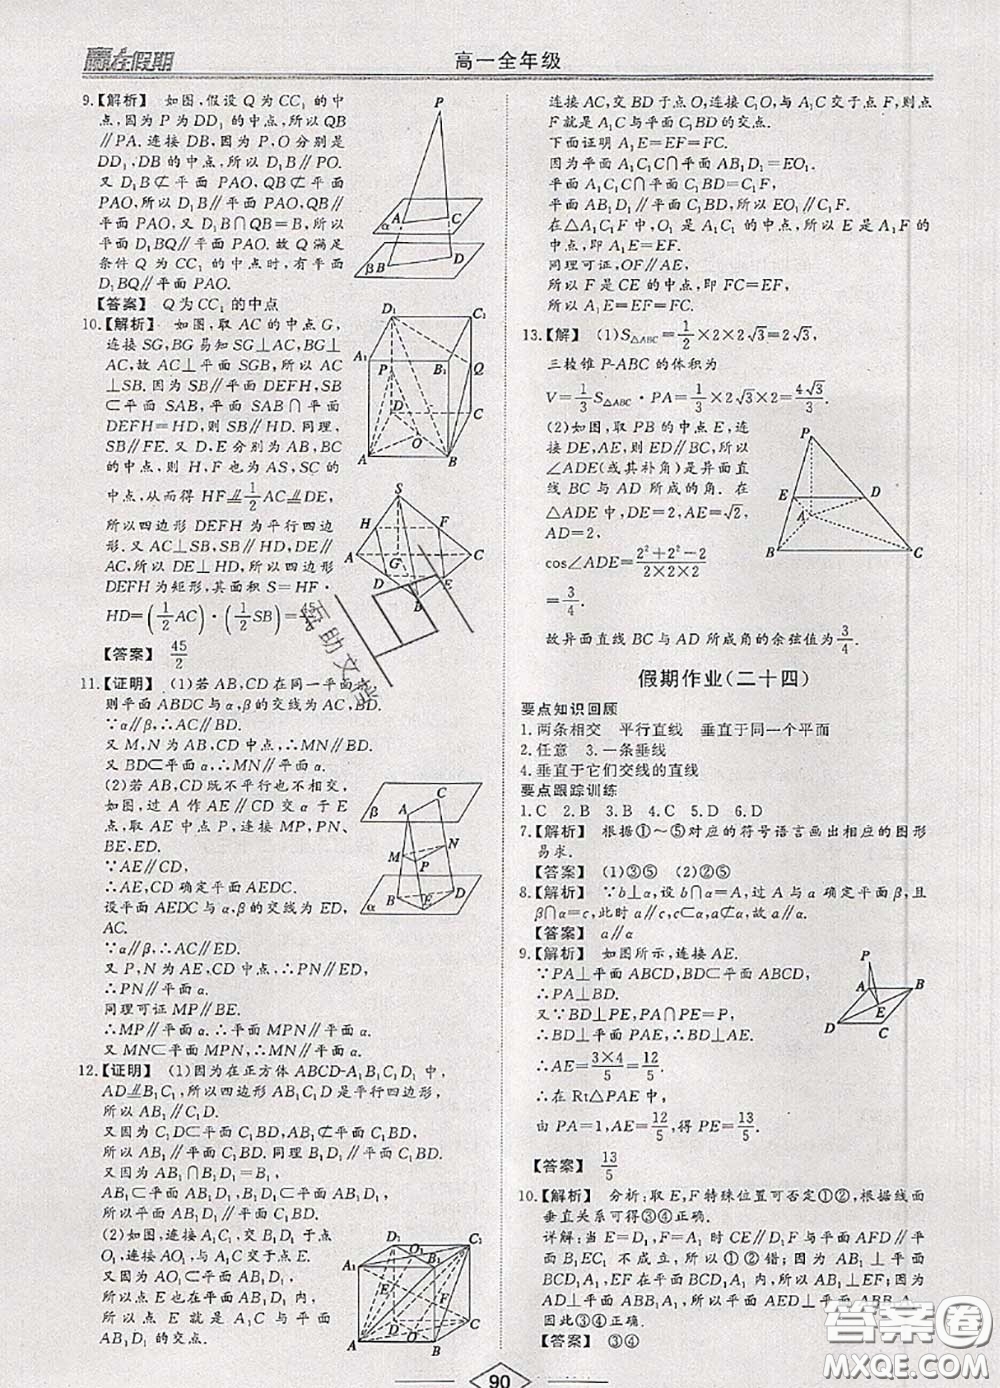 赢在假期
高一全年级
9.【解析】 如图,假设 Q 为 CC₁ 的中
点,因为 P 为 DD₁ 的中点,所以 QB
∥PA.连接 DB,因为 P、O 分别是
DD₁、DB 的中点,所以 D₁B∥PO.
又 D₁B⊄平面 PAO,QB⊄平面
PAO,所以 D₁B∥平面 PAO,QB∥
平面 PAO,又 D₁B∩QB=B,所以
平面 D₁BQ∥平面 PAO.故 Q 满足
条件 Q 为 CC₁ 的中点时,有平面
D₁BQ∥平面 PAO.
【答案】 Q 为 CC₁ 的中点
10.【解析】 如图,取 AC 的中点 G,
连接 SG,BG 易知 SG⊥AC,BG⊥
AC,故 AC⊥平面 SGB,所以 AC⊥
SB.因为 SB∥平面 DEFH,SB
⊂平面 SAB,平面 SAB∩平面
DEFH=HD,所以 SB∥HD.同理,
SB∥FE.又 D、E 分别为 AB、BC
的中点,则 H、F 也为 AS、SC 的
中点,从而得 HF⫽1/2AC⫽DE,
所以四边形 DEFH 为平行四边
形.又 AC⊥SB,SB∥HD,DE∥
AC,所以 DE⊥HD,所以四边形
DEFH 为矩形,其面积 S=HF·
HD=(1/2AC)·(1/2SB)=45/2
【答案】 45/2
11.【证明】 (1)若 AB、CD 在同一平面内,
则平面 ABDC 与 α、β 的交线为 AC、BD.
∵α∥β,∴AC∥BD.
又 M、N 为 AB、CD 的中点,∴MN∥BD.
又 BD⊂平面 α,∴MN∥平面 α.
(2)若 AB、CD 既不平行也不相交,
过 A 作 AE∥CD 交 α 于 E,
取 AE 中点 P,连接 MP、PN、
BE、ED.
∵AE∥CD,
∴AE、CD 确定平面 AEDC.
设平面 AEDC 与 α、β 的交线为 ED、
AC.
∵α∥β,∴AC∥ED.
又 P、N 为 AE、CD 中点,∴PN∥ED,
∴PN∥平面 α.
同理可证 MP∥BE.
∴MP∥平面 α,∴平面 MPN∥平面 α.
又 MN⊂平面 MPN,∴MN∥平面 α.
12.【证明】 (1)因为在正方体 ABCD-A₁B₁C₁D₁ 中,
AD⫽B₁C₁,所以四边形 AB₁C₁D 是平行四边形,
所以 AB₁∥C₁D.
又因为 C₁D⊂平面 C₁BD,AB₁⊄平面 C₁BD,
所以 AB₁∥平面 C₁BD.同理 B₁D₁∥平面 C₁BD.
又因为 AB₁∩B₁D₁=B₁,
AB₁⊂平面 AB₁D₁,B₁D₁⊂平面 AB₁D₁,
所以平面 AB₁D₁∥平面 C₁BD.
(2)如图,连接 A₁C₁,交 B₁D₁ 于点
O₁,连接 AO₁,与 A₁C 交于点 E.
又因为 AO₁⊂平面 AB₁D₁,
所以点 E 也在平面 AB₁D₁ 内,
所以点 E 就是 A₁C 与平面
AB₁D₁ 的交点.
连接 AC,交 BD 于点 O,连接 C₁O,与 A₁C 交于点 F,则点
F 就是 A₁C 与平面 C₁BD 的交点.
下面证明 A₁E=EF=FC.
因为平面 A₁C₁C∩平面 AB₁D₁=EO₁.
平面 A₁C₁C∩平面 C₁BD=C₁F,
平面 AB₁D₁∥平面 C₁BD,所以 EO₁∥C₁F.
在△A₁C₁F 中,O₁ 是 A₁C₁ 的中点,所以 E 是 A₁F 的
中点,即 A₁E=EF.
同理可证,OF∥AE,
所以 F 是 CE 的中点,即 FC=EF,
所以 A₁E=EF=FC.
13.【解】 (1)S△ABC=1/2×2×2√3=2√3,
三棱锥 P-ABC 的体积为
V=1/3S△ABC·PA=1/3×2√3×2=4√3/3.
(2)如图,取 PB 的中点 E,连
接 DE、AE,则 ED∥BC,所以
∠ADE(或其补角)是异面直
线 BC 与 AD 所成的角.在
△ADE 中,DE=2,AE=√2,
AD=2,
cos∠ADE=(2²+2²-2)/(2×2×2)
=3/4.
故异面直线 BC 与 AD 所成角的余弦值为3/4.
假期作业(二十四)
要点知识回顾
1.两条相交 平行直线 垂直于同一个平面
2.任意 3.一条垂线
4.垂直于它们交线的直线
要点跟踪训练
1.C 2.B 3.B 4.C 5.D 6.D
7.【解析】 根据①~⑤对应的符号语言画出相应的图形
易求.
【答案】 (1)③⑤ (2)②⑤
8.【解析】 ∵b⊥α,设 b∩α=A,过 A 与 a 确定平面 β,且
β∩α=c,此时 a∥c,c⊂α,a⊄α,故 a∥α.
【答案】 a∥α
9.【解析】 如图所示,连接 AE.
∵PA⊥平面 ABCD,BD⊂平面 ABCD,
∴PA⊥BD.
又∵BD⊥PE,PA∩PE=P,
∴BD⊥平面 PAE,∴BD⊥AE.
∴AE=3×4/5=12/5.
∴在 Rt△PAE 中,
由 PA=1,AE=12/5,得 PE=13/5.
【答案】 13/5
10.【解析】 分析:取 E、F 特殊位置可否定①②,根据线面
垂直关系可得③④正确.
详解:当 E=D₁,F=A₁ 时 CE∥D₁F 与平面 AFD∥平
面 B₁EC₁ 不成立,所以①②错;因为 AB₁⊥平面
BCD₁A₁,EF 在平面 BCD₁A₁ 内,所以 AB₁⊥EF;因为
AD⊥平面 ABB₁A₁,所以平面 AED⊥平面 ABB₁A₁.
因此③④正确.
【答案】 ③④
90
答案圈
MXQE.COM